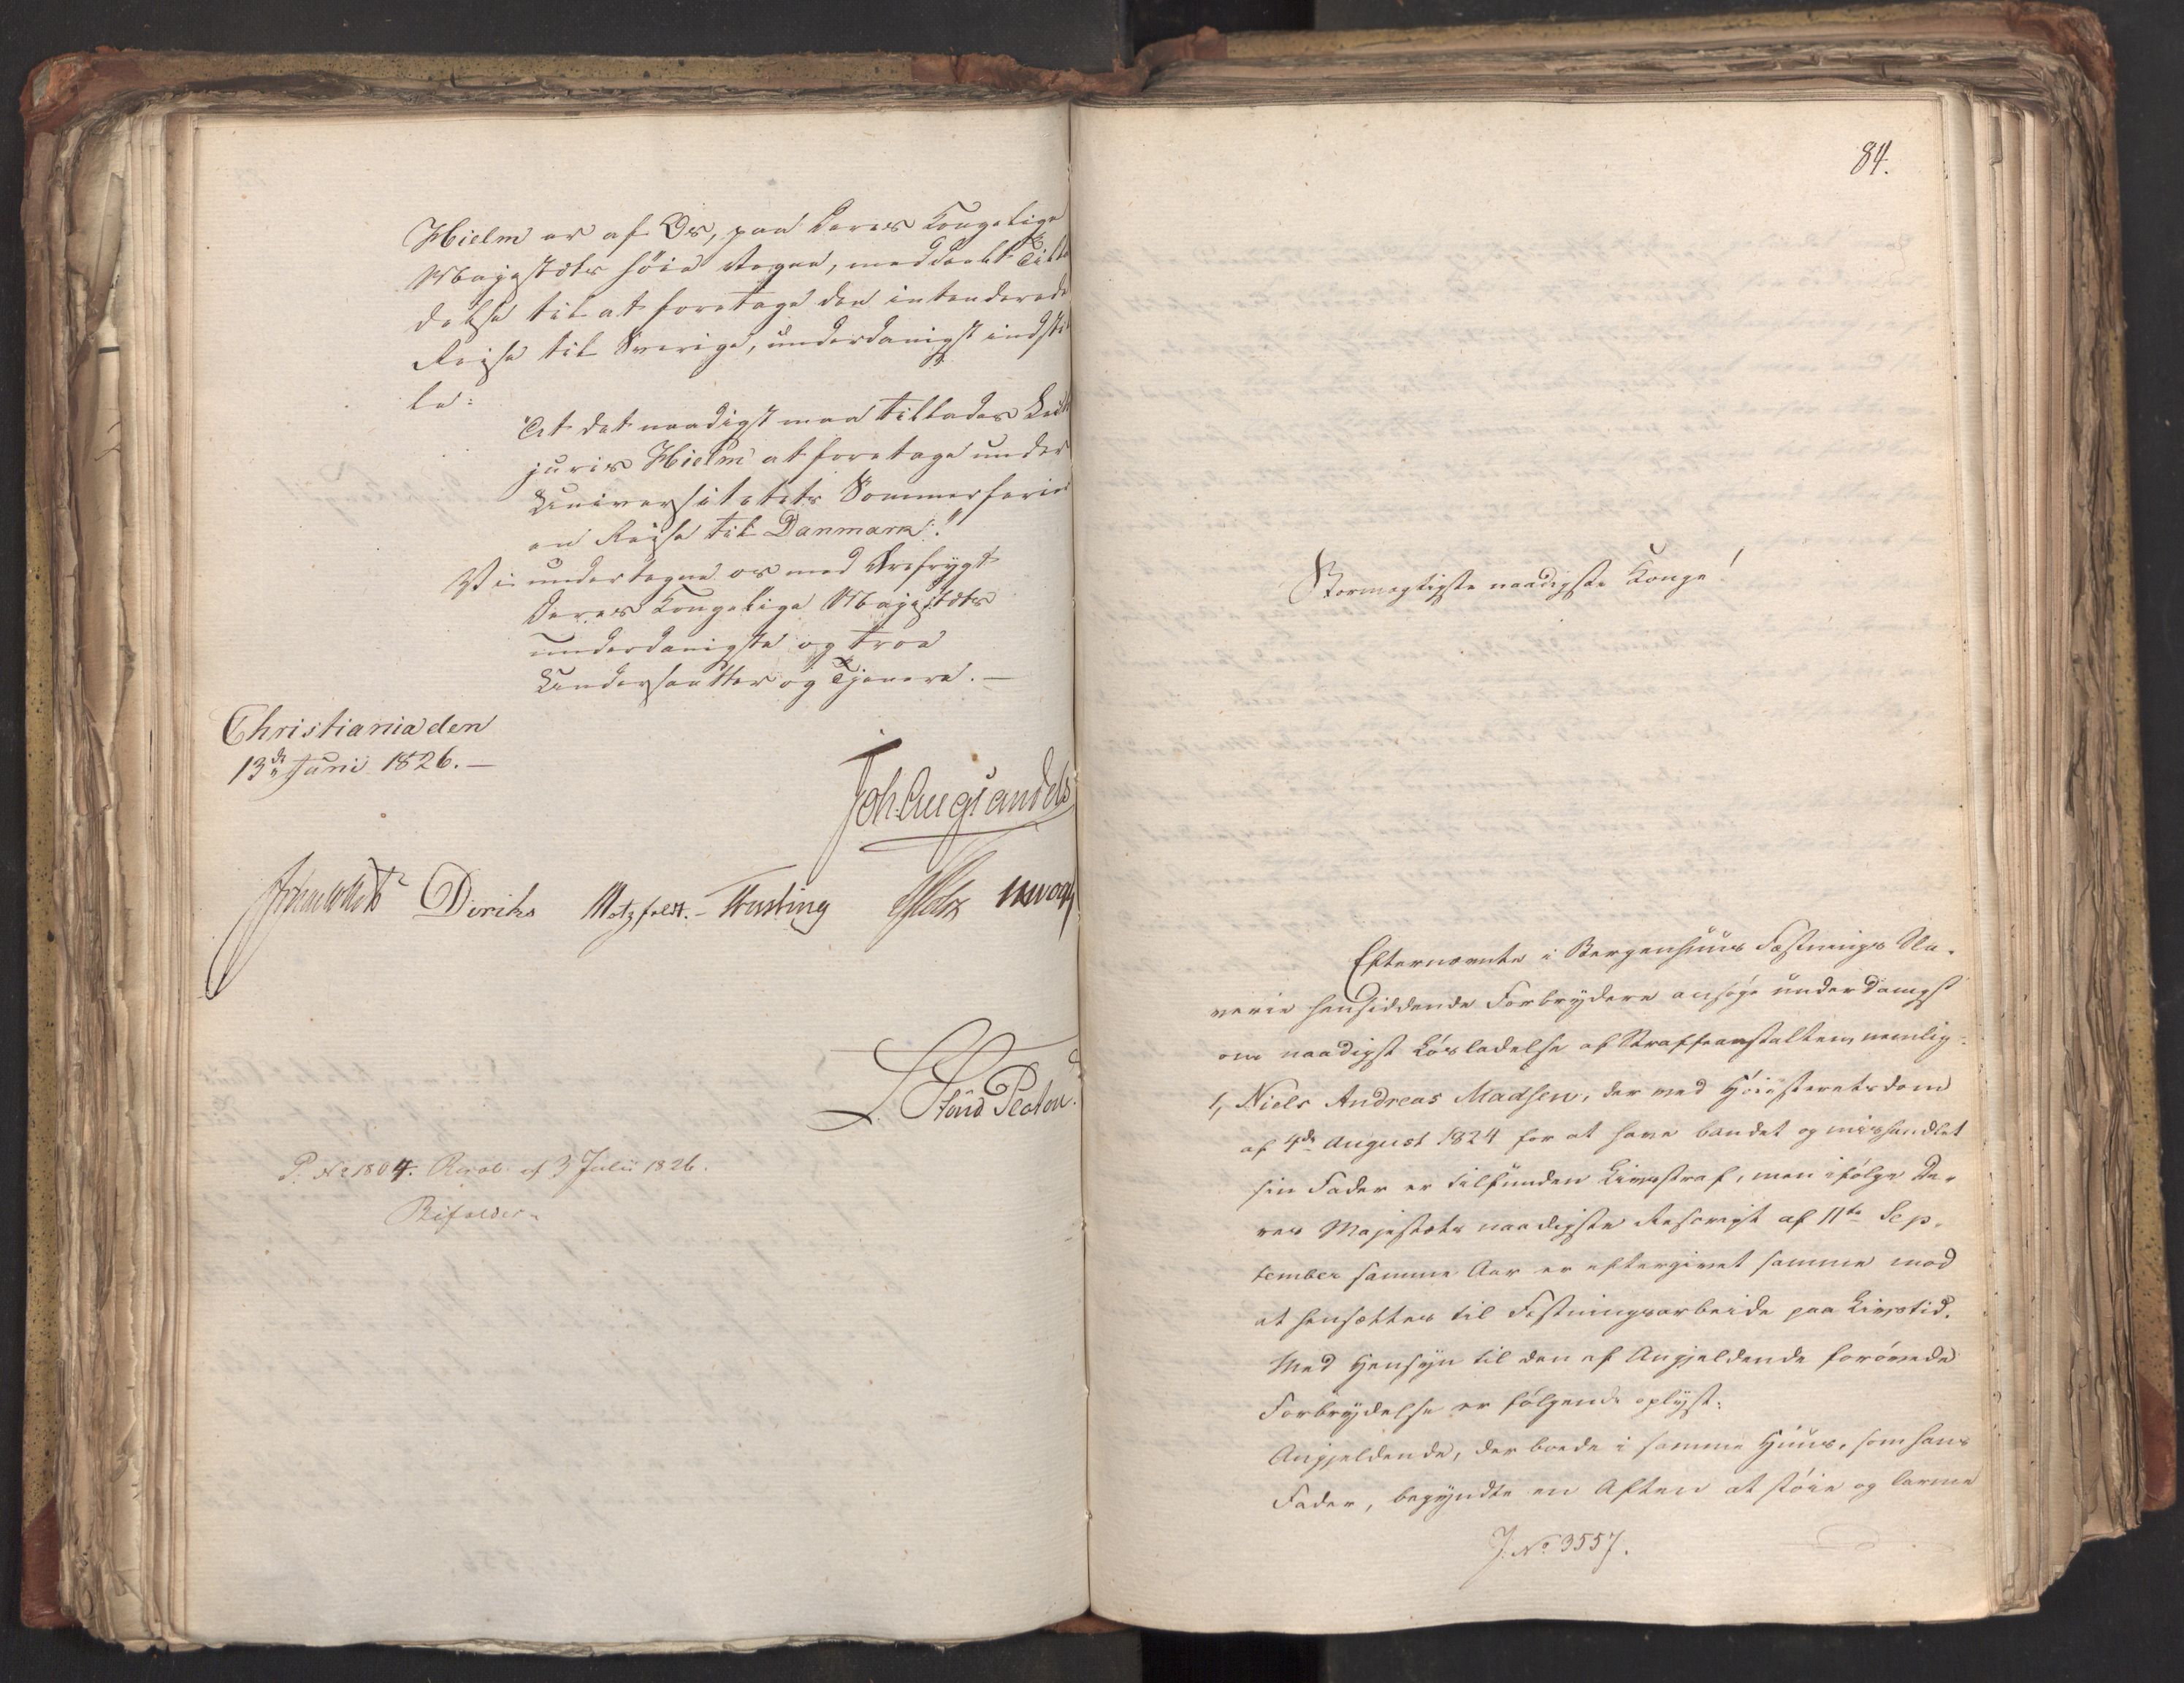 Hielm er af Os, paa Deres Kongelige
Majestæts høie Vegne, meddeelt Tilla
delse til at foretage den intenderede
Reise til Sverige, underdanigst indstil
le:
"At det naadigst maa tillades
juris Hielm at foretage under
Universitetets Sommerferie
en Reise til Danmark."
Vi undertegne os med Ærefrygt
Deres Kongelige Majestæts
underdanigste og troe
Undersaatter og Tjenere. —
Christiania den
13de Juni 1826. —
Joh. Aug. Sandels
Diriks Motzfeldt. Krebting
L. Stoud Platou.
P. No 1804. Resol. af 3 Julii 1826.
Bifaldes.
84.
Stormægtigste naadigste Konge!
Efternævnte i Bergenhuus Fæstnings Sla-
verie hensiddende Forbrydere ansøge underdanigst
om naadigst Løsladelse af Straffeanstalten, nemlig:
1, Niels Andreas Madsen, der ved Høiesteretsdom
af 4de August 1824 for at have bandet og mishandlet
sin Fader er tilfunden Livsstraf, men ifølge De-
res Majestæts naadigste Rescript af 11te Sep-
tember samme Aar er eftergivet samme mod
at hensættes til Fæstningsarbeide paa Livstid.
Med Hensyn til den af Angjeldende forøvede
Forbrydelse er følgende oplyst:
Angjeldende, der boede i samme Huus, som hans
Fader, begyndte en Aften at støie og larme
J. No 3557.